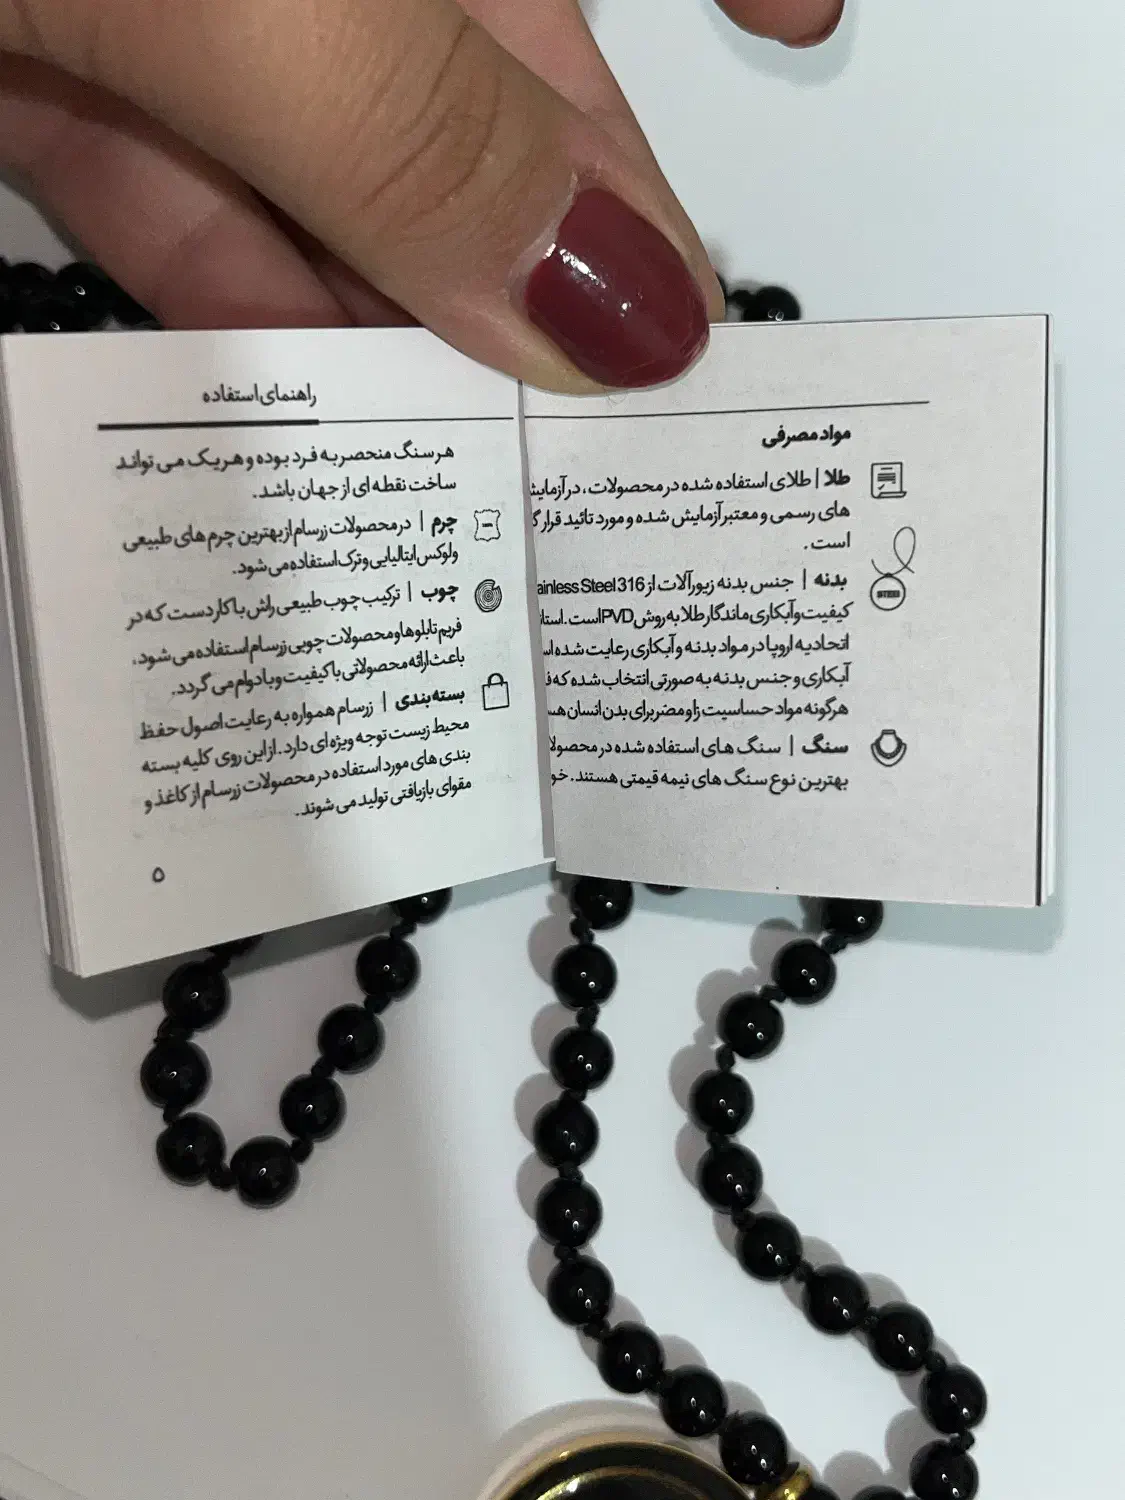 مواد مصرفی
طلا | طلای استفاده شده در محصولات، در آزمایش
های رسمی و معتبر آزمایش شده و مورد تائید قرار
است.
STEEL
بدنه | جنس بدنه زیورآلات از ainless Steel 316
کیفیت و آبکاری ماندگار طلا به روش PVD است. استا
اتحادیه اروپا در مواد بدنه و آبکاری رعایت شده اس
آبکاری و جنس بدنه به صورتی انتخاب شده که
هرگونه مواد حساسیت زا و مضر برای بدن انسان هس
سنگ | سنگ های استفاده شده در محصولا
بهترین نوع سنگ های نیمه قیمتی هستند. خو
راهنمای استفاده
هر سنگ منحصر به فرد بوده و هر یک می تواند
ساخت نقطه ای از جهان باشد.
چرم | در محصولات زرسام از بهترین چرم های طبیعی
ولوکس ایتالیایی و ترک استفاده می شود.
چوب | ترکیب چوب طبیعی راش با کار دست که در
فریم تابلوها و محصولات چوبی زرسام استفاده می شود،
باعث ارائه محصولاتی با کیفیت و با دوام می گردد.
بسته بندی | زرسام همواره به رعایت اصول حفظ
محیط زیست توجه ویژه ای دارد. از این روی کلیه بسته
بندی های مورد استفاده در محصولات زرسام از کاغذ و
مقوای بازیافتی تولید می شوند.
۵